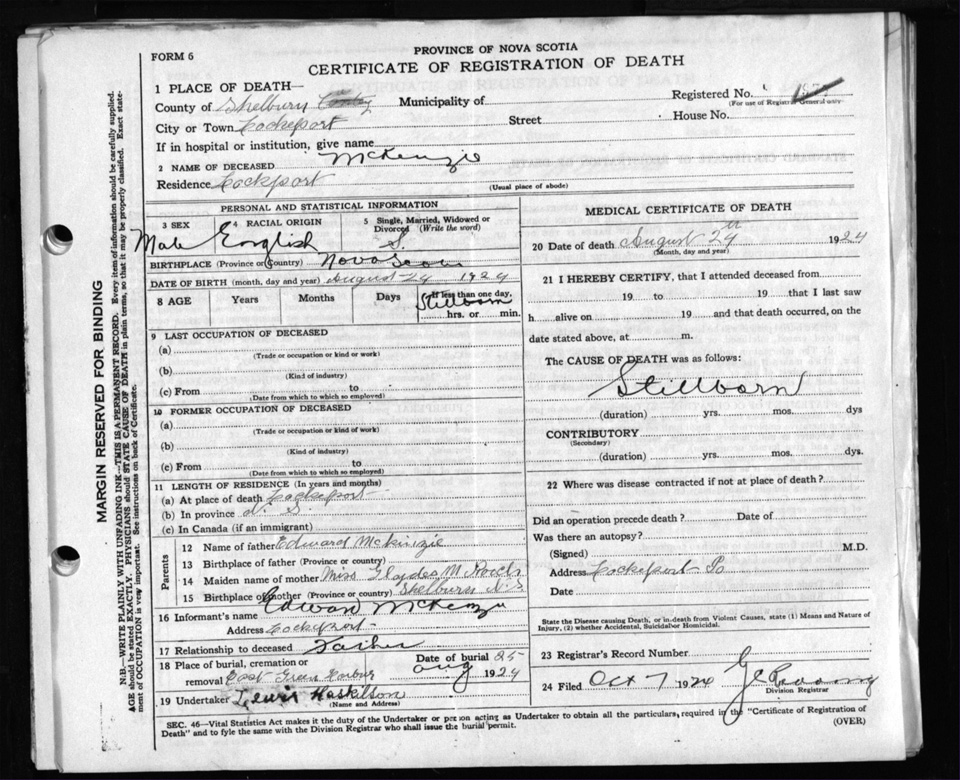 FORM 6
PROVINCE OF NOVA SCOTIA
CERTIFICATE OF REGISTRATION OF DEATH
1 PLACE OF DEATH—
Registered No.
(For use of Registrar General only)
County of Shelburn County Municipality of
House No.
City or Town Lockeport Street
If in hospital or institution, give name
2 NAME OF DECEASED McKenzie
Residence Lockport
(Usual place of abode)
PERSONAL AND STATISTICAL INFORMATION
3 SEX 4 RACIAL ORIGIN 5 Single, Married, Widowed or Divorced (Write the word)
Male English S.
BIRTHPLACE (Province or Country) Nova Scotia
DATE OF BIRTH (month, day and year) August 24 1924
8 AGE Years Months Days If less than one day,
Stillborn
hrs. or min.
9 LAST OCCUPATION OF DECEASED
(a)
(Trade or occupation or kind or work)
(b)
(Kind of industry)
(c) From to
(Date from which to which so employed)
10 FORMER OCCUPATION OF DECEASED
(a)
(Trade or occupation or kind of work)
(b)
(Kind of industry)
(c) From to
(Date from which to which so employed)
11 LENGTH OF RESIDENCE (In years and months)
(a) At place of death Lockeport
(b) In province N. S
(c) In Canada (if an immigrant)
Parents
12 Name of father Edward McKinzie
13 Birthplace of father (Province or country)
14 Maiden name of mother Miss M
15 Birthplace of mother (Province or country) Shelburn N.S
16 Informant's name Edward McKenzie
Address Lockeport
17 Relationship to deceased Father
18 Place of burial, cremation or
removal East Green Harbour
Date of burial 25
Aug 1924
19 Undertaker Lewis
(Name and Address)
MEDICAL CERTIFICATE OF DEATH
20 Date of death August 24th 1924
(Month, day and year)
21 I HEREBY CERTIFY, that I attended deceased from
19 to 19 that I last saw
h alive on 19 and that death occurred, on the
date stated above, at m.
The CAUSE OF DEATH was as follows:
Stillborn
(duration) yrs. mos. dys
CONTRIBUTORY
(Secondary)
(duration) yrs. mos. dys.
22 Where was disease contracted if not at place of death?
Did an operation precede death? Date of
Was there an autopsy?
(Signed) M.D.
Address Lockeport
Date
State the Disease causing Death, or in death from Violent Causes, state (1) Means and Nature of
Injury, (2) whether Accidental, Suicidal or Homicidal.
23 Registrar's Record Number
24 Filed Oct 7 1924
Division Registrar
SEC. 46—Vital Statistics Act makes it the duty of the Undertaker or person acting as Undertaker to obtain all the particulars, required in the "Certificate of Registration of
Death" and to fyle the same with the Division Registrar who shall issue the burial permit.
(OVER)
MARGIN RESERVED FOR BINDING
N.B.—WRITE PLAINLY WITH UNFADING INK—THIS IS A PERMANENT RECORD. Every item of information should be carefully supplied.
AGE should be stated EXACTLY. PHYSICIANS should STATE CAUSE OF DEATH in plain terms, so that it may be properly classified. Exact state-
ment of OCCUPATION is very important. See instructions on back of Certificate.